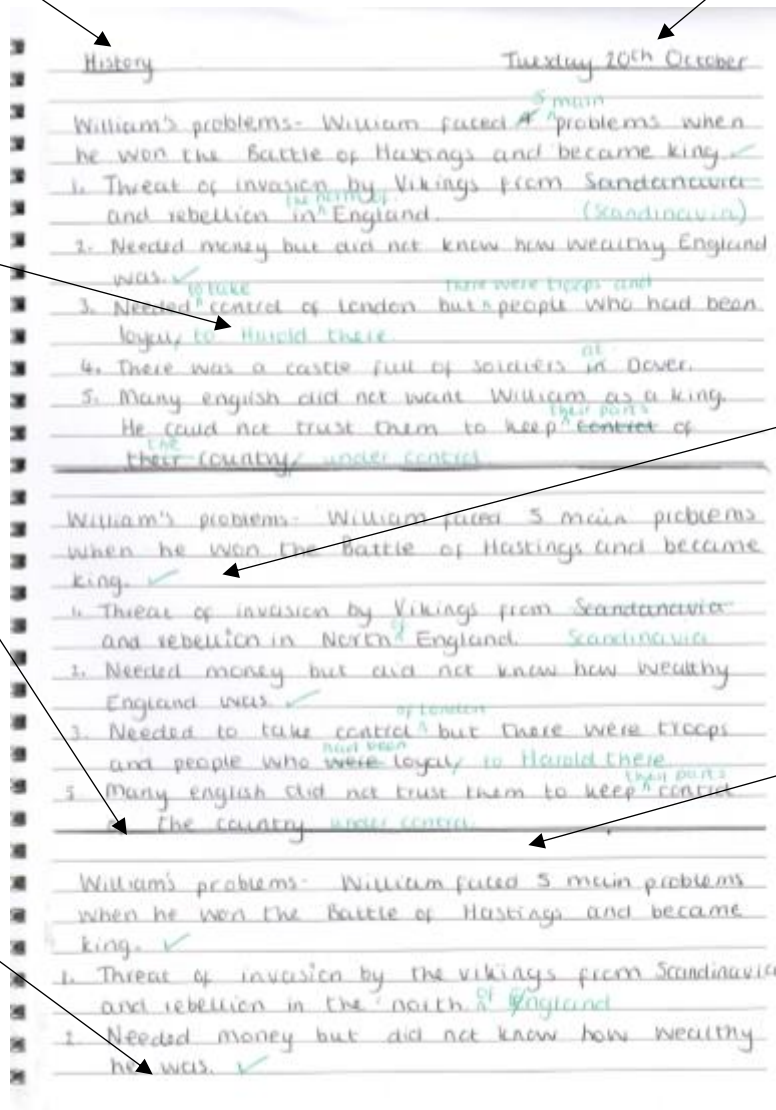 History Tuesday 20th October
5 main
William's problems- William faced 4 ^ problems when
he won the Battle of Hastings and became king. ✓
1. Threat of invasion by Vikings from Sandanavia
the north of
and rebellion in ^ England. (Scandinavia)
2. Needed money but did not know how wealthy England
was. ✓
to take There were troops and
3. Needed ^ control of London but ^ people who had been
loyal, to Harold there.
at
4. There was a castle full of soldiers in Dover.
5. Many english did not want William as a king.
their parts
He could not trust them to keep ^ control of
the
their country, under control
William's problems- William faced 5 main problems
when he won the Battle of Hastings and became
king. ✓
1. Threat of invasion by Vikings from Scandanavia
of
and rebellion in North ^ England. Scandinavia
2. Needed money but did not know how wealthy
England was. ✓
of London
3. Needed to take control ^ but there were troops
had been
and people who were loyal, to Harold there
their parts
5 Many english did not trust them to keep ^ control
the country under control.
William's problems- William faced 5 main problems
when he won the Battle of Hastings and became
king. ✓
1. Threat of invasion by the vikings from Scandinavia
of
and rebellion in the north. ^ England
2. Needed money but did not know how wealthy
he was. ✓